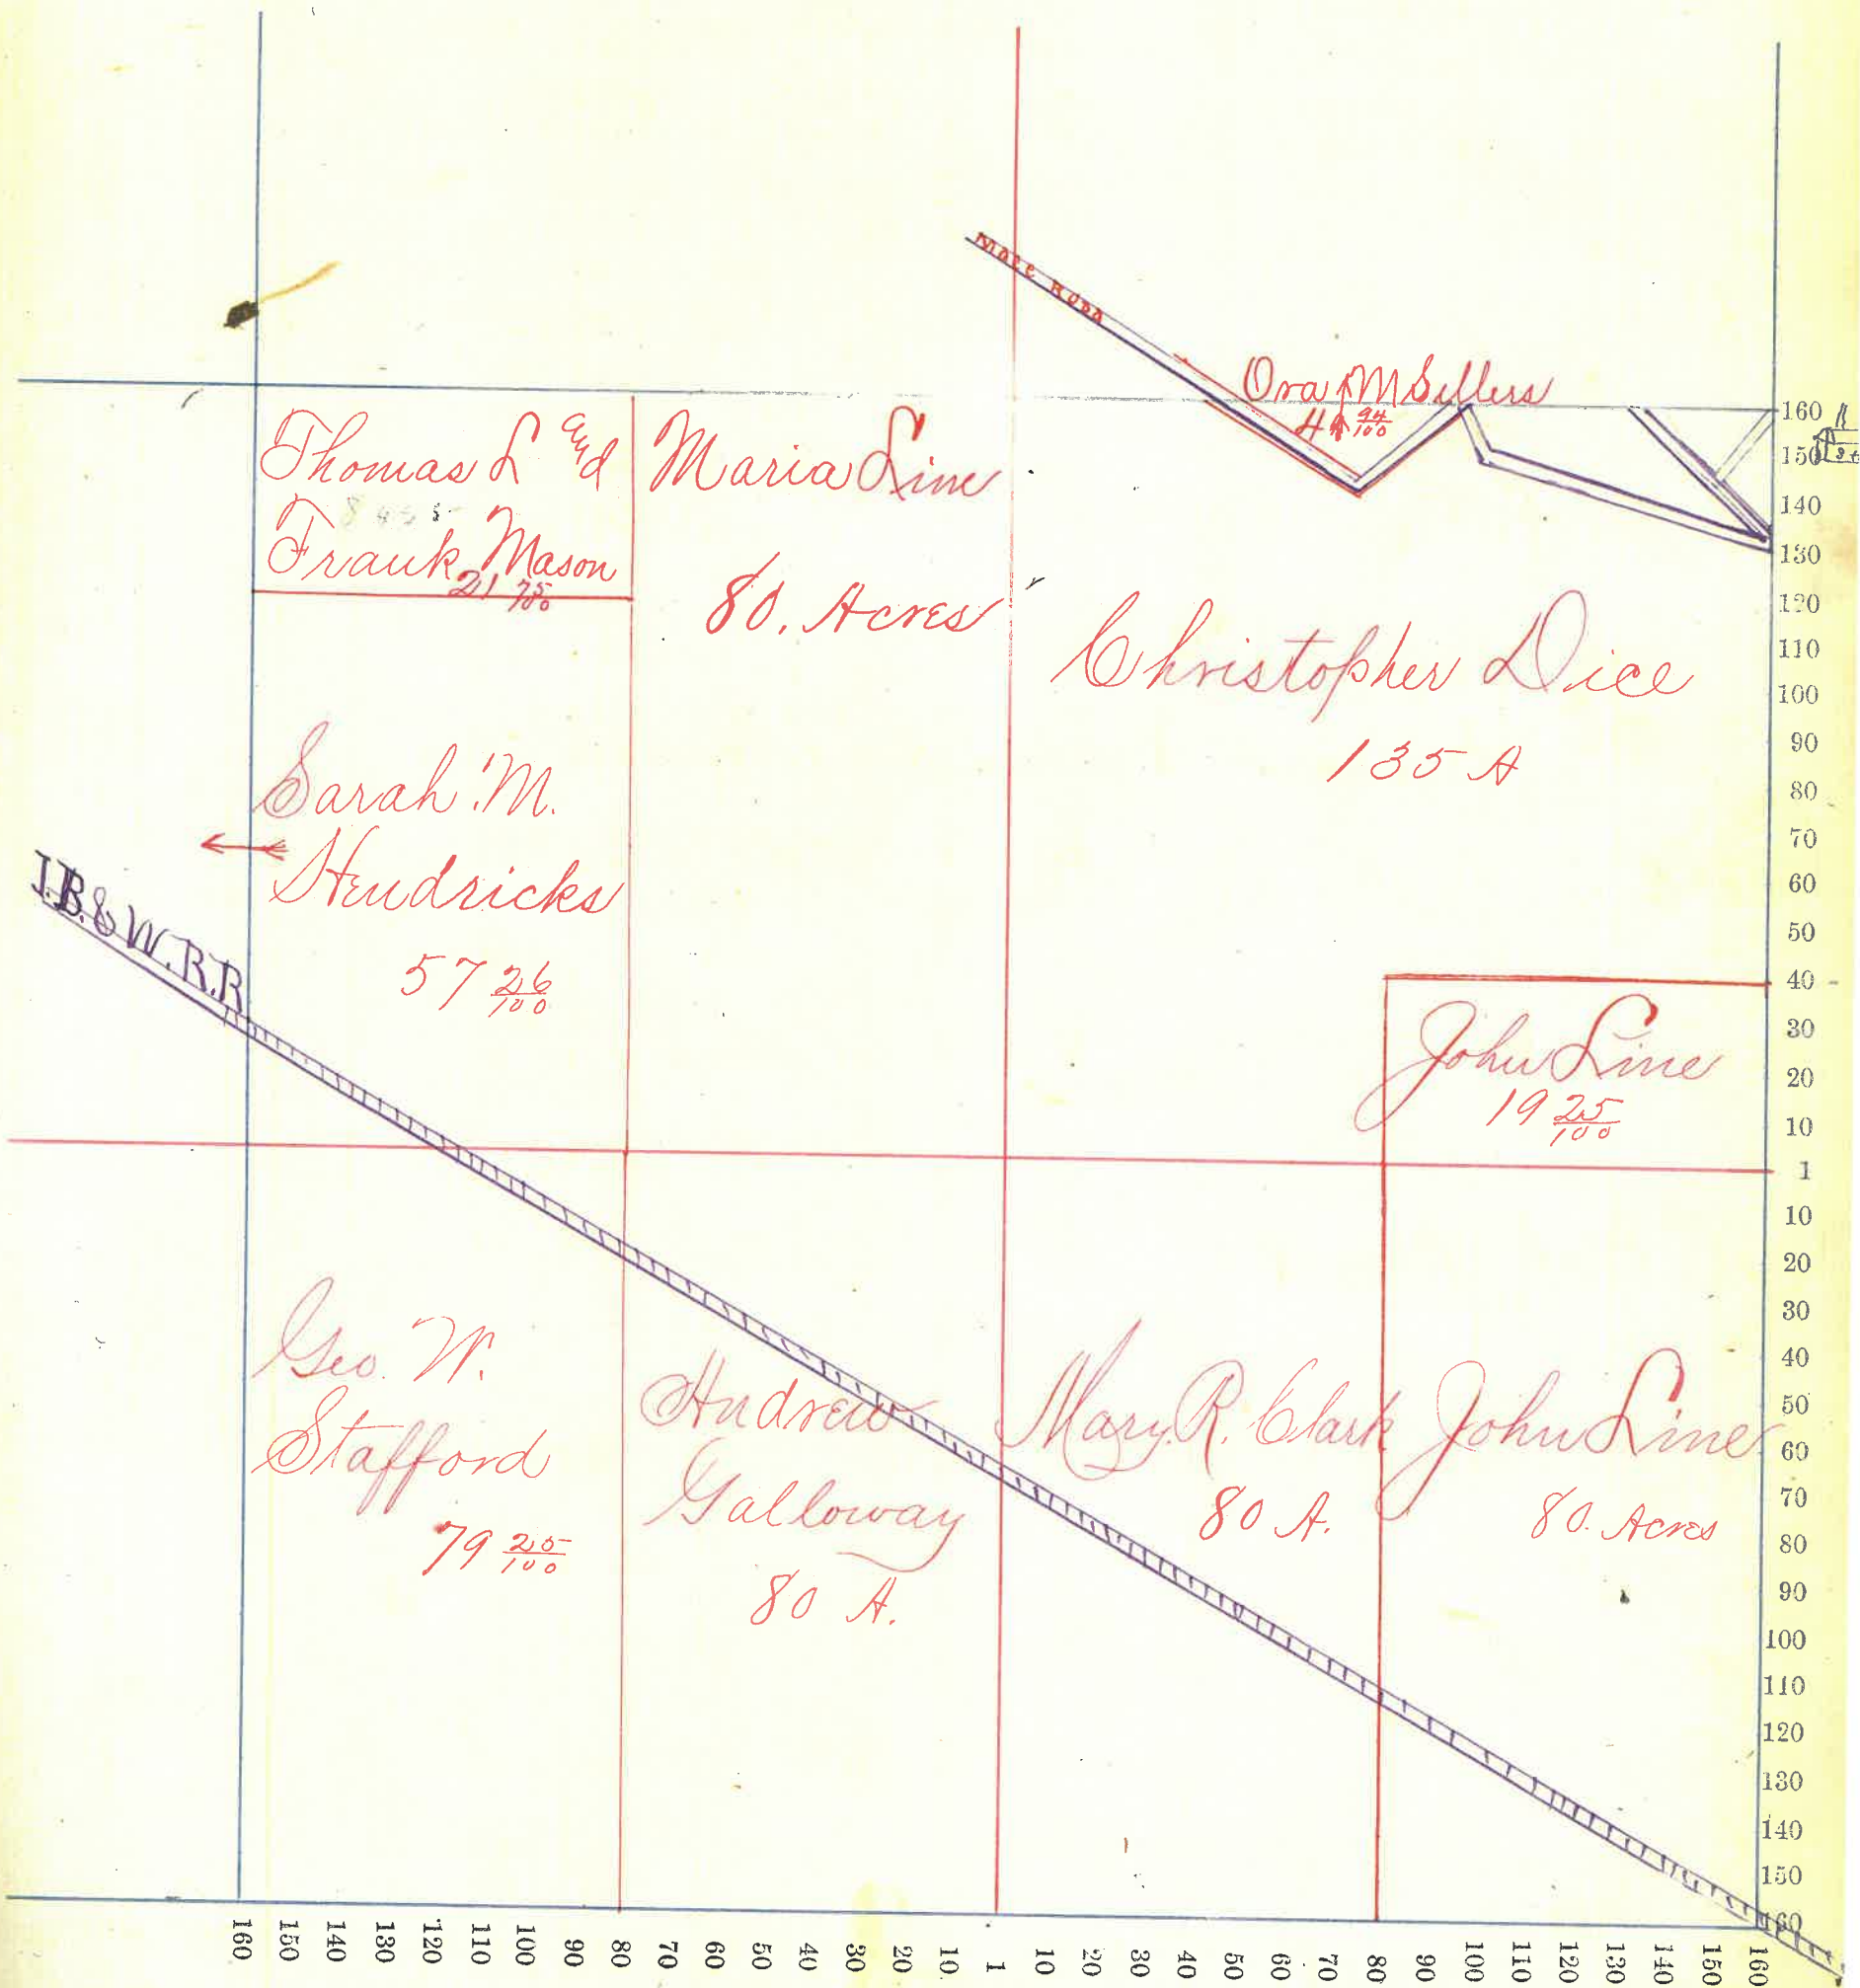 Ora M Sellers
4 94/100
Thomas L and
Frank Mason
21 75/100
Maria Line
80. Acres
Christopher Dice
135 A
Sarah M.
Hendricks
57 26/100
I.B.& W.R.R
John Line
19 25/100
Geo. W.
Stafford
79 25/100
Andrew
Galloway
80 A.
Mary R. Clark
80 A.
John Line
80. Acres
160
150
140
130
120
110
100
90
80
70
60
50
40
30
20
10
1
10
20
30
40
50
60
70
80
90
100
110
120
130
140
150
160
160 150 140 130 120 110 100 90 80 70 60 50 40 30 20 10 1 10 20 30 40 50 60 70 80 90 100 110 120 130 140 150 160